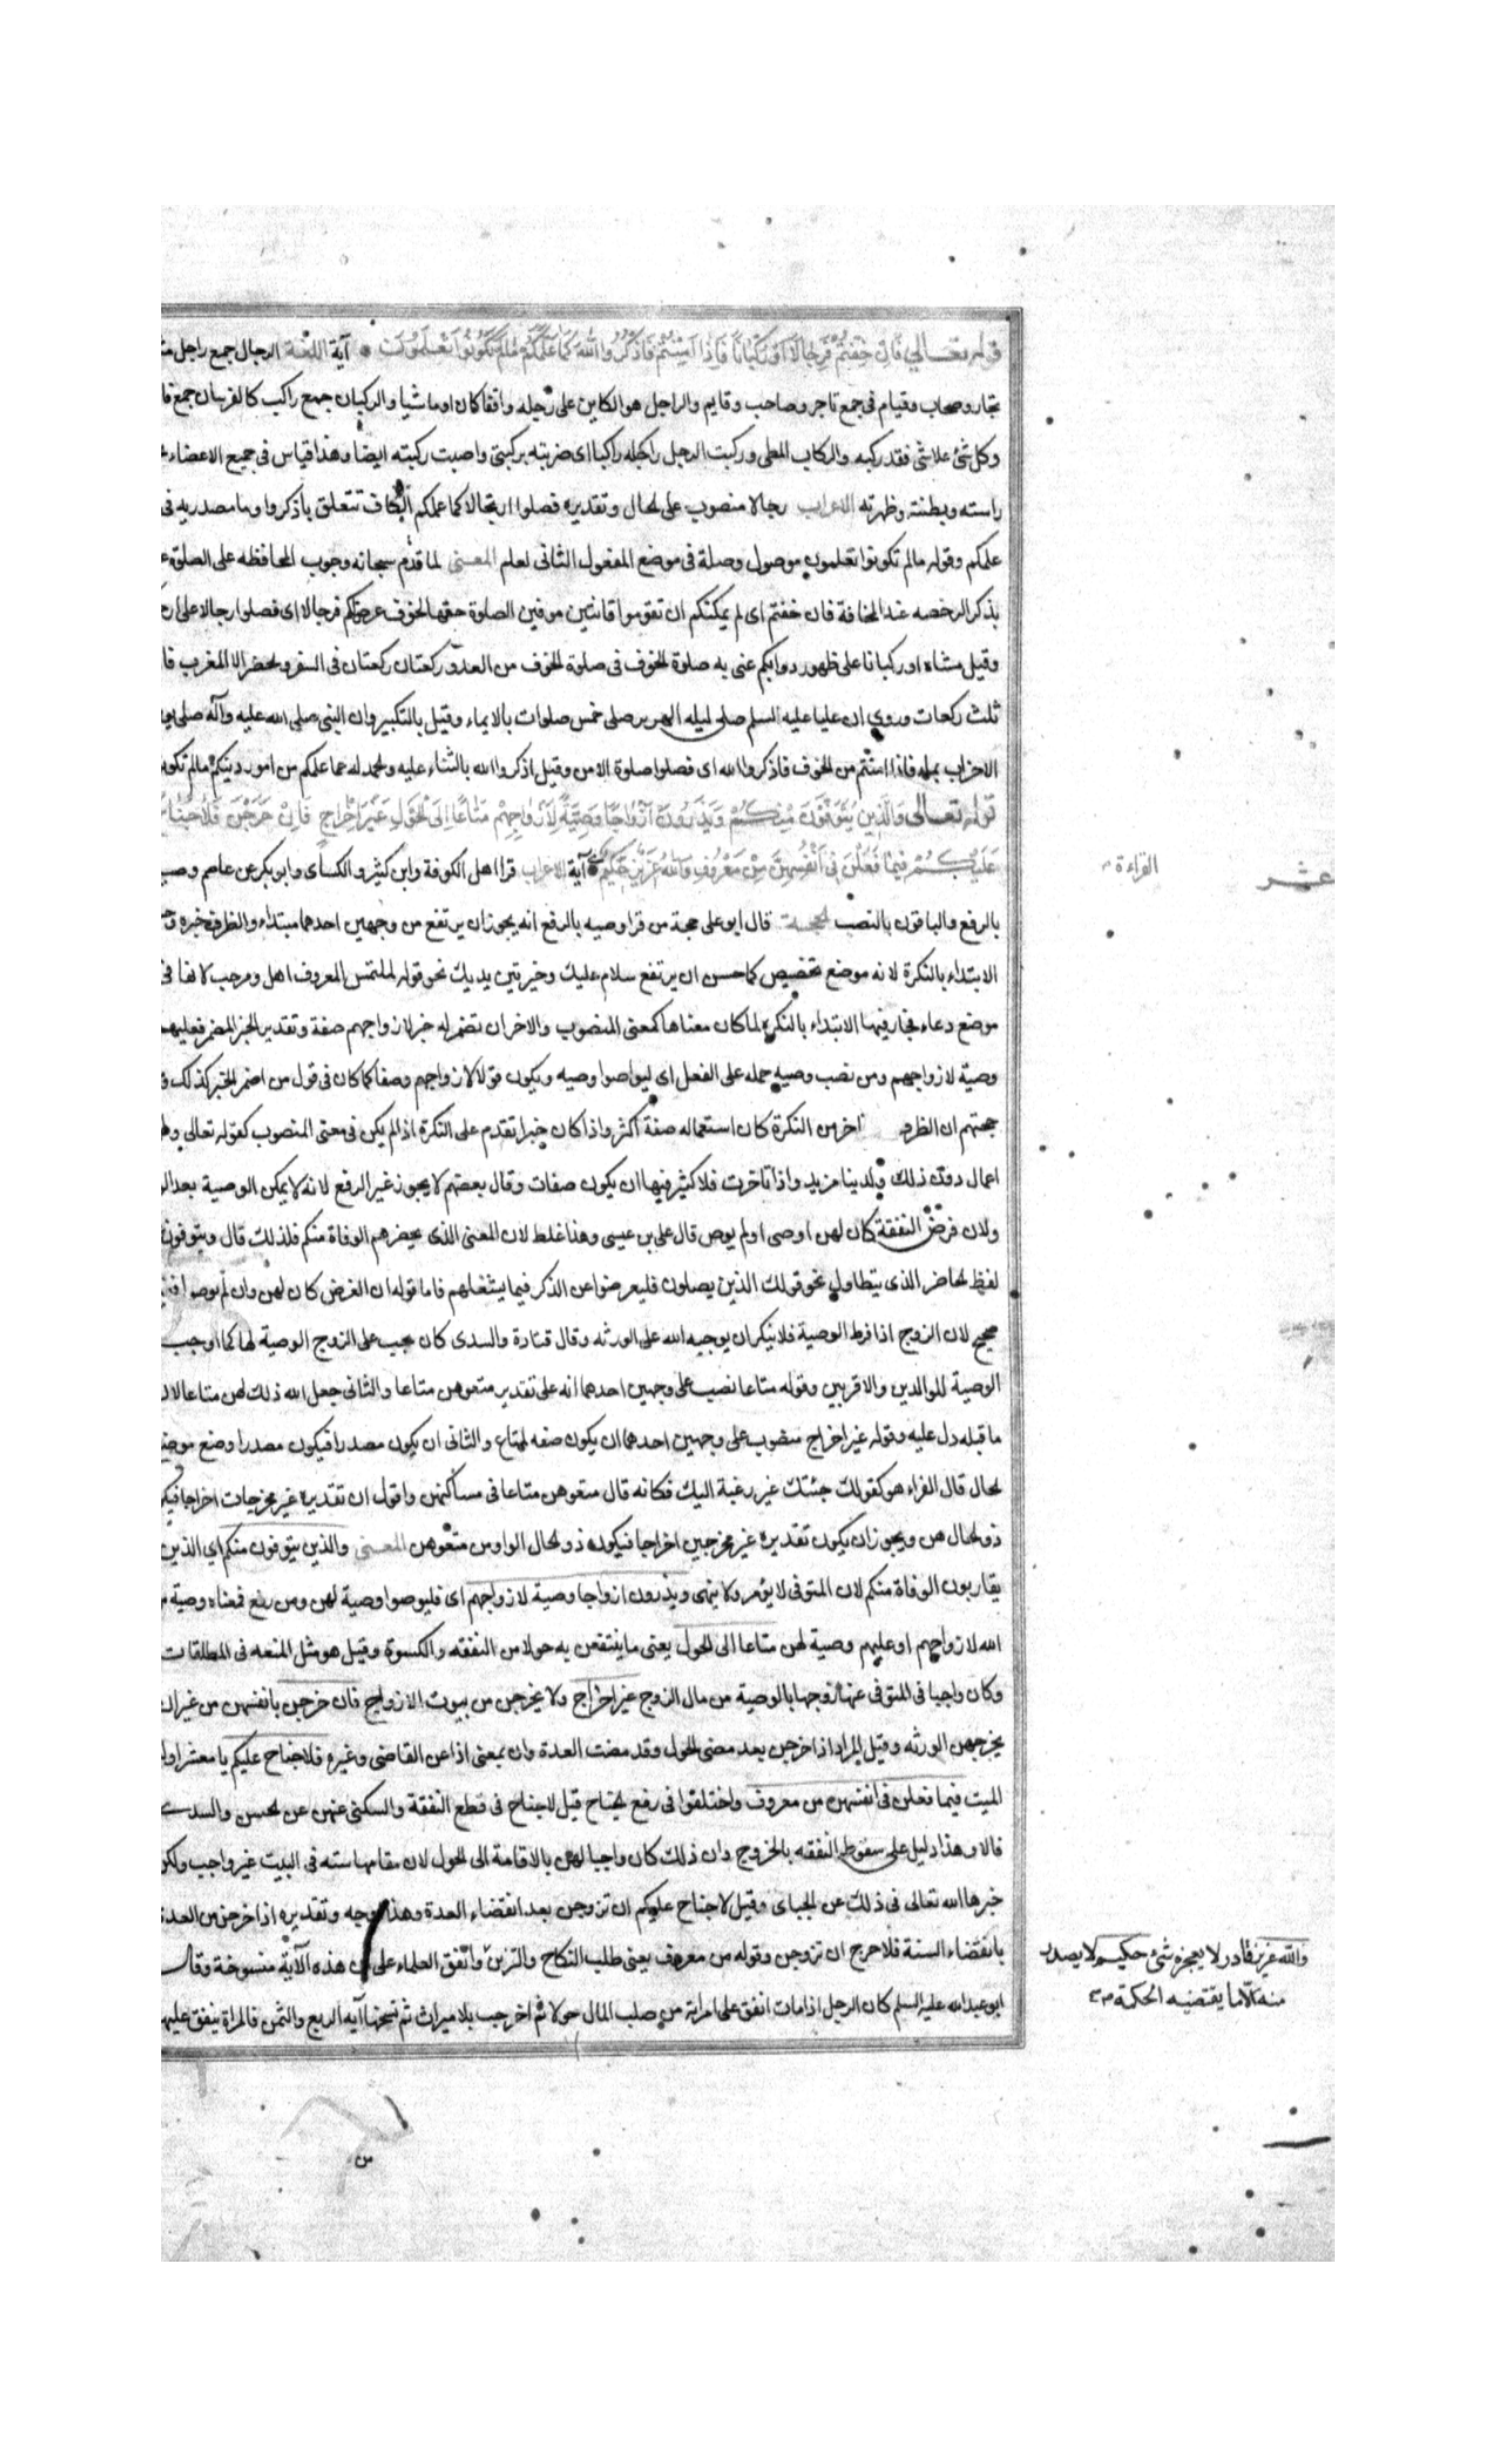 قوله تعالى فَاِنْ خِفْتُمْ فَرِجَالًا اَوْ رُكْبَانًا فَاِذَا اَمِنْتُمْ فَاذْكُرُوا اللهَ كَمَا عَلَّمَكُمْ مَا لَمْ تَكُونُوا تَعْلَمُونَ آية اللغة الرجال جمع راجل
تجار وصحاب وقيام فى جمع تاجر وصاحب وقايم والراجل هو الكاين على رجله واقفا كان او ماشيا والركبان جمع راكب كالفرسان جمع
وكل شئ علا شئ فقد ركبه والركاب المطى وركبت الرجل اركبه ركبا اى ضربته بركبتى واصبت ركبته ايضا وهذا قياس فى جميع الاعضاء
راسته وبطنته وظهرته الاعراب رجالا منصوب على الحال وتقديره فصلوا رجالا كما علمكم الكاف تتعلق باذكروا وما مصدريه
علمكم وقوله مالم تكونوا تعلمون موصول وصلة فى موضع المفعول الثانى لعلم المعنى لما قدم سبحانه وجوب المحافظه على الصلوة
بذكر الرخصه عند المخافة فان خفتم اى لم يمكنكم ان تقوموا قانتين موفين الصلوة حقها لخوف عرض لكم فرجالا اى فصلوا رجالا على
وقيل مشاه او ركبانا على ظهور دوابكم عنى به صلوة الخوف فى صلوة الخوف من العدو ركعتان ركعتان فى السفر والحضر الا المغرب
ثلث ركعات وروي ان عليا عليه السلم صلى ليله الهرير صلى خمس صلوات بالايماء وقيل بالتكبير وان النبى صلى الله عليه وآله صلى
الاحزاب ايماء فاذا امنتم من الخوف فاذكروا الله اى فصلوا صلوة الامن وقيل اذكروا الله بالثناء عليه والحمد له كما علمكم من امور دينكم مالم
قوله تعالى وَالَّذِينَ يُتَوَفَّوْنَ مِنْكُمْ وَيَذَرُونَ اَزْوَاجًا وَصِيَّةً لِاَزْوَاجِهِمْ مَتَاعًا اِلَى الْحَوْلِ غَيْرَ اِخْرَاجٍ فَاِنْ خَرَجْنَ فَلَا جُنَاحَ
عَلَيْكُمْ فِيمَا فَعَلْنَ فِى اَنْفُسِهِنَّ مِنْ مَعْرُوفٍ وَاللهُ عَزِيزٌ حَكِيمٌ آية الاعراب قرا اهل الكوفة وابن كثير والكسائى وابو بكر عن عاصم
القراءة
عشر
بالرفع والباقون بالنصب الحجة قال ابو على حجة من قرا وصيه بالرفع انه يجوز ان يرتفع من وجهين احدهما مبتداء والظرف خبره
الابتداء بالنكرة لانه موضع تخصيص كما حسن ان يرتفع سلام عليك وخير بين يديك نحو قوله لملتمس المعروف اهل ومرحب
موضع دعاء فجاز فيها الابتداء بالنكرة لما كان معناها كمعنى المنصوب والاخر ان تضمر له خبر لازواجهم صفة وتقدير الخبر المضمر فعليهم
وصية لازواجهم ومن نصب وصيه حمله على الفعل اى ليوصوا وصيه ويكون قولا لازواجهم وصفا كما كان فى قول من اضمر الخبر كذلك
حجتهم ان الظرف اخر من النكرة كان استعماله صفة اكثر واذا كان خبرا تقدم على النكرة اذا لم يكن فى معنى المنصوب كقوله تعالى
اعمال دون ذلك ولدينا مزيد واذا تاخرت فلا كثير فيها ان يكون صفات وقال بعضهم لا يجوز غير الرفع لانه لا يمكن الوصية
ولان فرض النفقة كان لهن اوصى او لم يوص قال على بن عيسى وهذا غلط لان المعنى الذى يحضرهم الوفاة منكم فلذلك قال ويتوفون
لفظ الحاضر الذى يتطاول نحو قولك الذين يصلون فليعرضوا عن الذكر فيما يشغلهم فاما قوله ان الفرض كان لهن وان لم يوصوا
صحيح لان الزوج اذا فرط الوصية فلا ينكر ان يوجبه الله على الورثه وقال قتادة والسدى كان يجب على الزوج الوصية لها كما اوجب
الوصية للوالدين والاقربين وقوله متاعا نصب على وجهين احدهما انه على تقدير متعوهن متاعا والثانى جعل الله ذلك لهن متاعا
ما قبله دل عليه وقوله غير اخراج منصوب على وجهين احدهما ان يكون صفه لمتاع والثانى ان يكون مصدرا فيكون مصدرا وضع
الحال قال الفراء هو كقولك جئتك غير رغبة اليك فكانه قال متعوهن متاعا فى مساكنهن واقول ان تقديره غير مخرجات اخراجا
ذو الحال هن ويجوز ان يكون تقديره غير مخرجين اخراجا فيكون ذو الحال الواو من متعوهن المعنى والذين يتوفون منكم اي الذين
يقاربون الوفاة منكم لان المتوفى لا يؤمر ولا ينهى ويذرون ازواجا وصية لازواجهم اى فليوصوا وصية لهن ومن رفع فمعناه وصية
الله لازواجهم او عليهم وصية لهن متاعا الى الحول يعنى ما ينتفعن به حولا من النفقه والكسوة وقيل هو مثل المتعه فى المطلقات
وكان واجبا فى المتوفى عنها زوجها بالوصية من مال الزوج غير اخراج ولا يخرجن من بيوت الازواج فان خرجن بانفسهن من غير ان
يخرجهن الورثه وقيل المراد اذا خرجن بعد مضى الحول وقد مضت العدة وان بمعنى اذا عن القاضى وغيره فلا جناح عليكم يا معشر
الميت فيما فعلن فى انفسهن من معروف واختلفوا فى رفع الجناح قيل لا جناح فى قطع النفقة والسكنى عنهن عن الحسن والسدى
قالا وهذا دليل على سقوط النفقه بالخروج وان ذلك كان واجبا لهن بالاقامة الى الحول لان مقامها سنه فى البيت غير واجب ولكن
خيرها الله تعالى فى ذلك عن الجبائى وقيل لا جناح عليكم ان تزوجن بعد انقضاء العدة وهذا وجه وتقديره اذا خرجن من
بانقضاء السنة فلا حرج ان تزوجن وقوله من معروف يعنى طلب النكاح والتزين واتفق العلماء على ان هذه الآية منسوخة وقال
ابو عبد الله عليه السلم كان الرجل اذا مات انفق على امراته من صلب المال حولا ثم اخرجت بلا ميراث ثم نسختها آيه الربع والثمن فالمراة ينفق عليها
والله عزيز قادر لا يعجزه شئ حكيم لا يصدر
منه الّا ما يقتضيه الحكمة
من